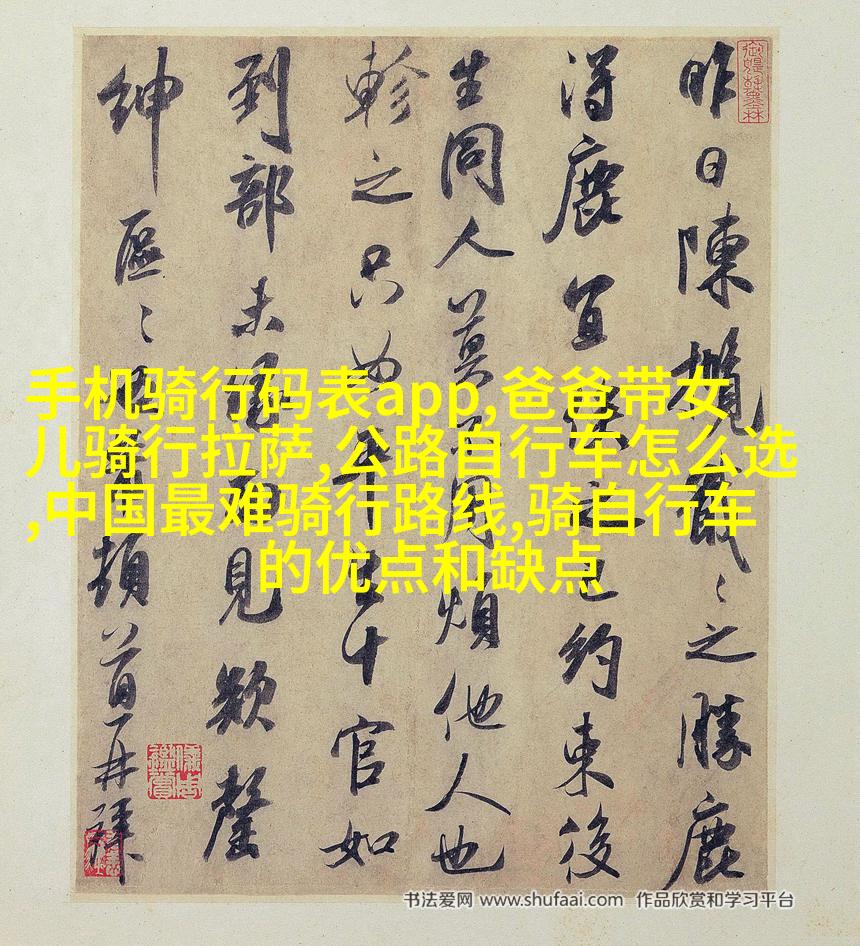 昨日陳攬戢〻之勝鹿
得鹿宜也約束後
生同人莫用煩他人也
軫之只如平生十官如
到部未面見欵罄
紳區〻頓首再拜
手机骑行码表app,爸爸带女
儿骑行拉萨,公路自行车怎么选
,中国最难骑行路线,骑自行车
的优点和缺点
书法爱网 www.shufaai.com 作品欣赏和学习平台